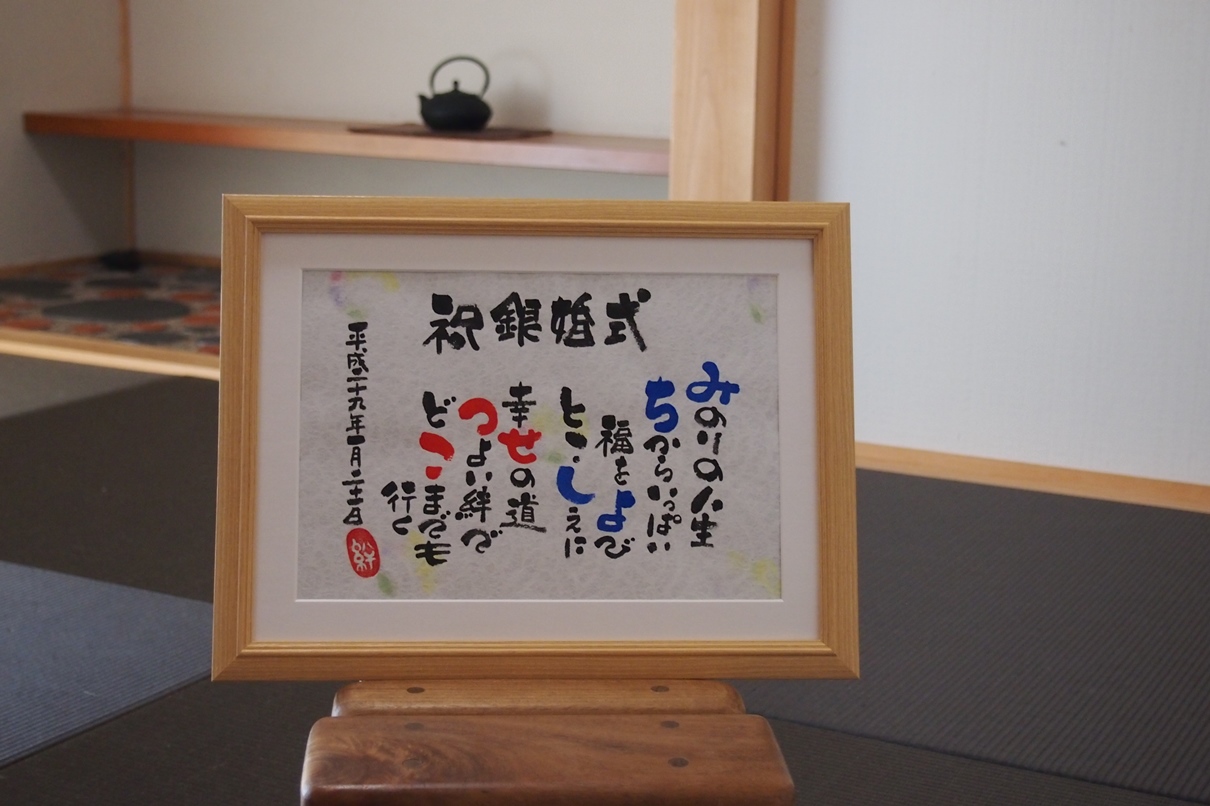 祝銀婚式
みのりの人生
ちからいっぱい
福をよび
とこしえに
幸せの道
つよい絆で
どこまでも
行く
平成二十九年一月二十二日
絆